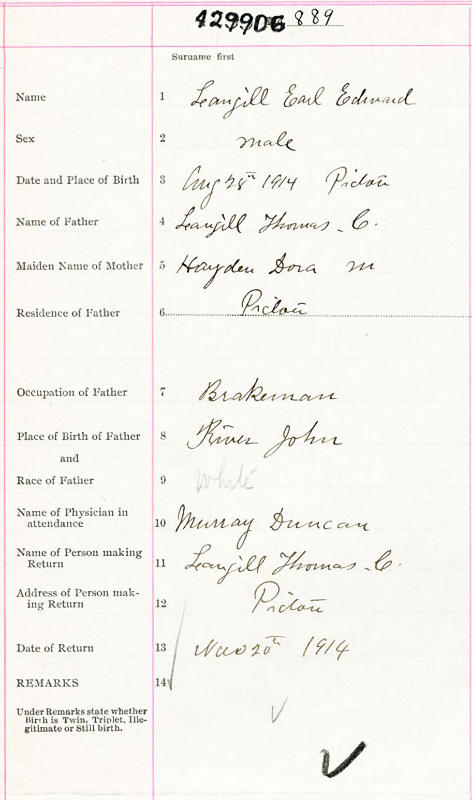 429906 889
Surname first
Name 1 Langill Earl Edward
Sex 2 male
Date and Place of Birth 3 Aug 28th 1914 Pictou
Name of Father 4 Langill Thomas C.
Maiden Name of Mother 5 Hayden Dora M
Residence of Father 6 Pictou
Occupation of Father 7 Brakeman
Place of Birth of Father 8 River John
and
Race of Father 9 White
Name of Physician in
attendance 10 Murray Duncan
Name of Person making
Return 11 Langill Thomas C.
Address of Person mak-
ing Return 12 Pictou
Date of Return 13 Nov 20th 1914
REMARKS 14
Under Remarks state whether
Birth is Twin, Triplet, Ille-
gitimate or Still birth.